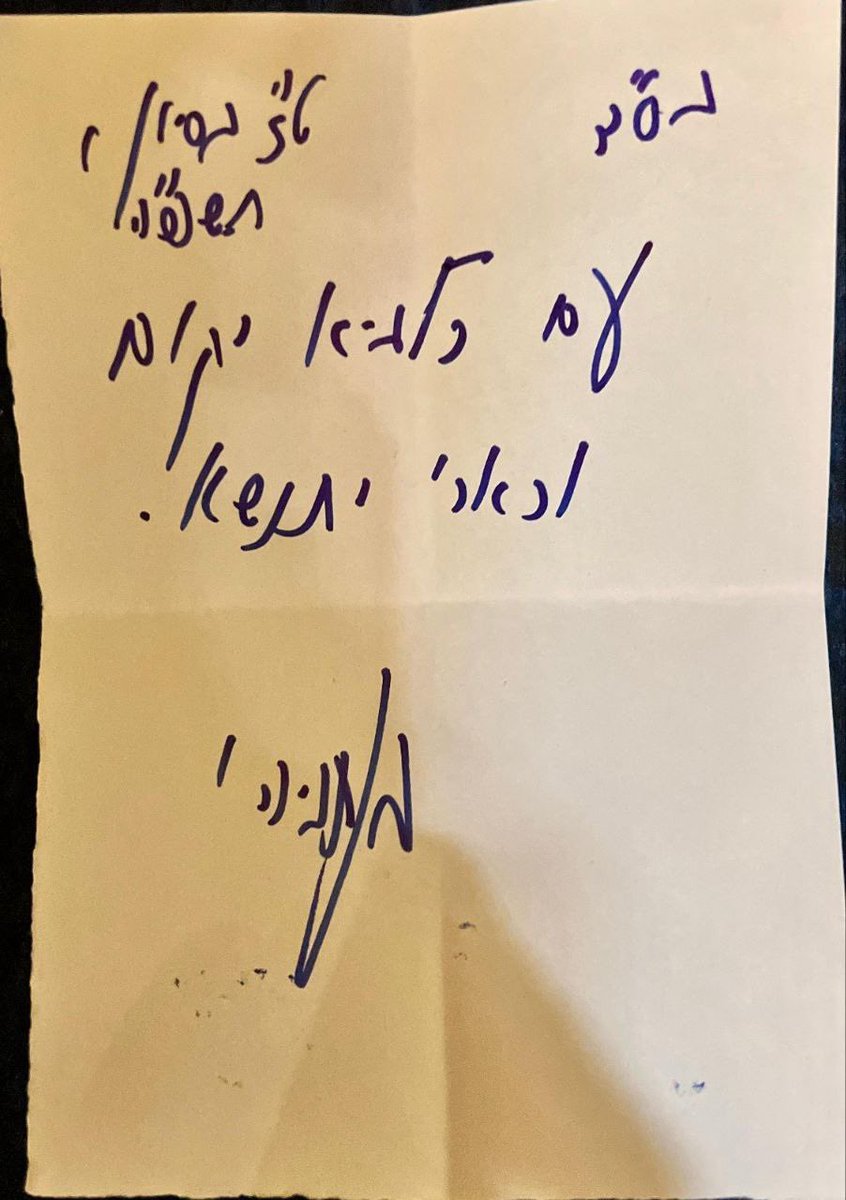 בס"ד ט"ז בסיון,
תשפ"ה
עם כלביא יקום
וכארי יתנשא.
ב נתניהו